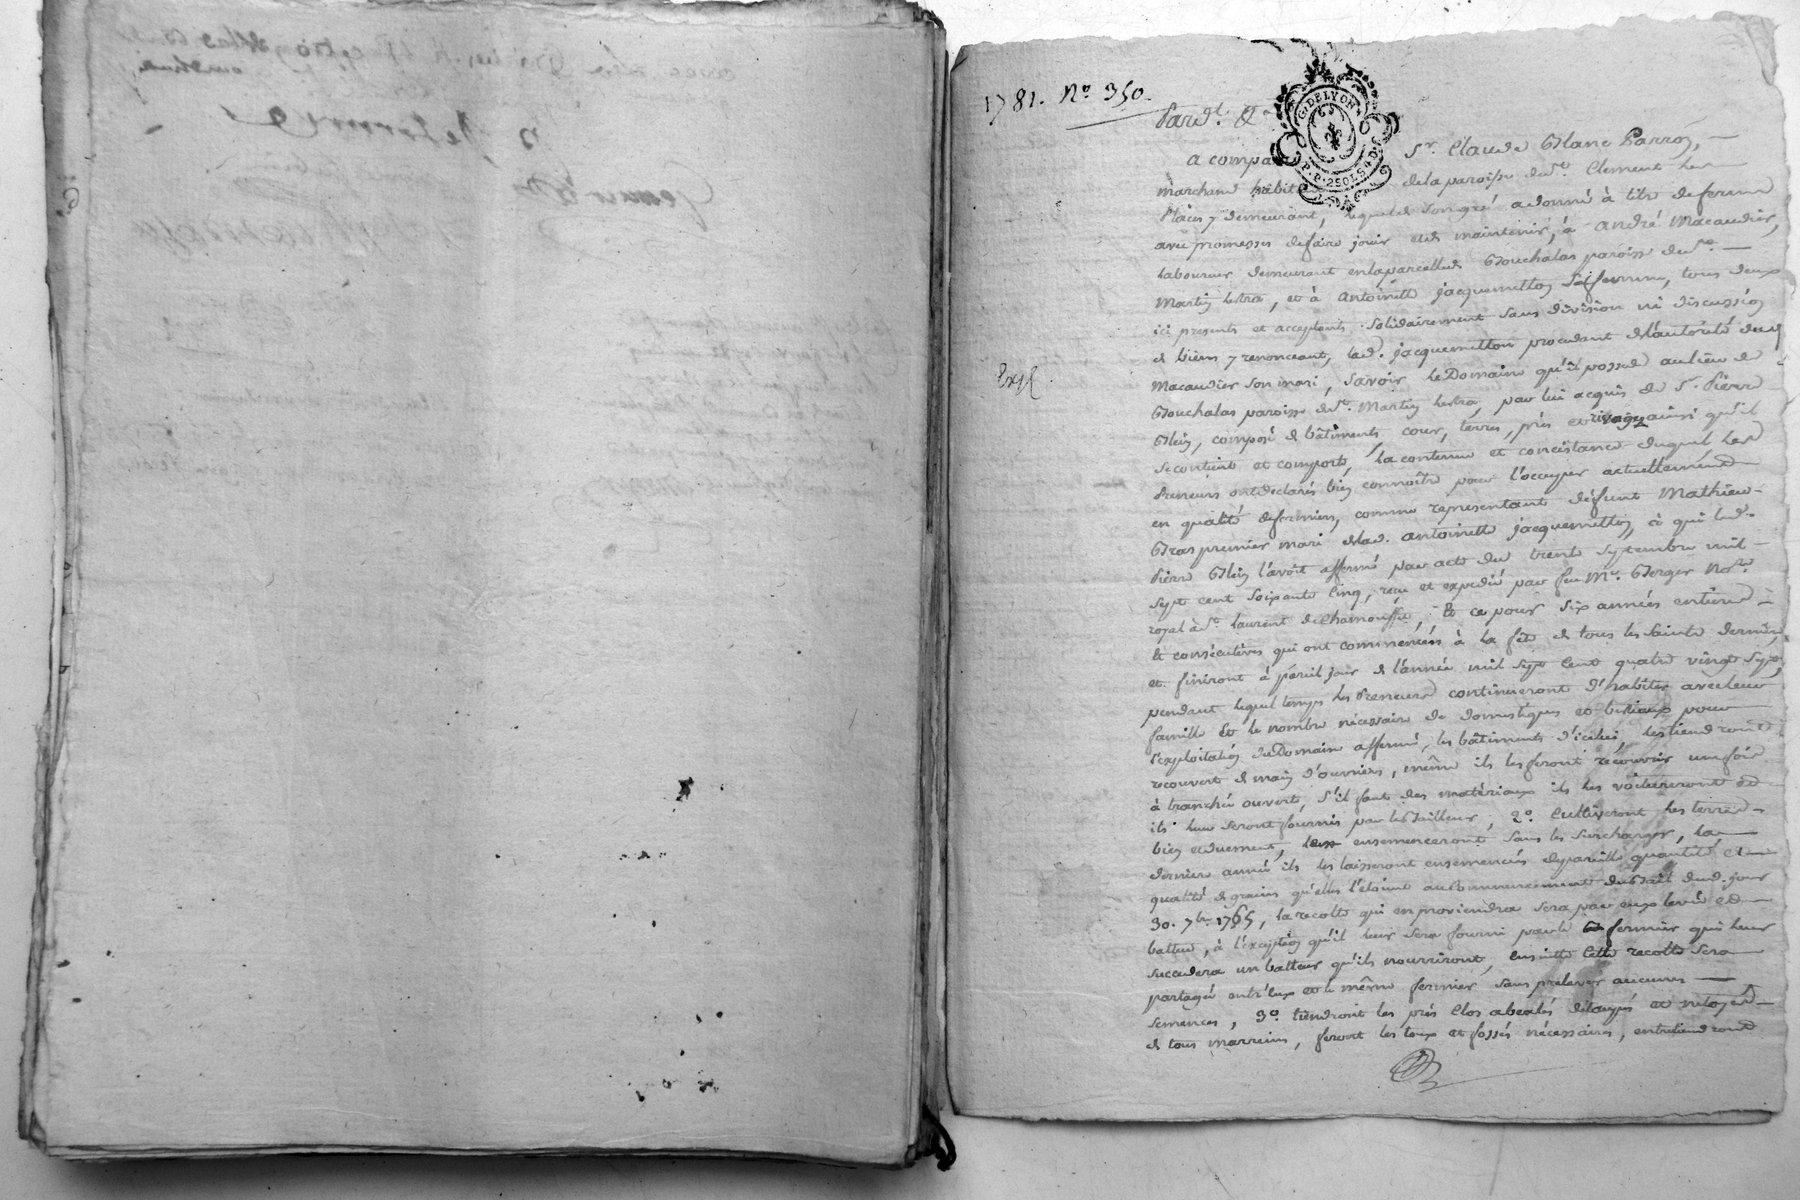 1781. No 350.
Pard.t &
G. DELYON
P.P. 2SOLS4D.
a comparu Sr. Claude Blanc Parron,
marchand habit de la paroisse de St. Clement les
Places y demeurant, lequel de son gré a donné à titre de ferme
avec promesses de faire jouir et de maintenir, à André Macaudier,
laboureur demeurant en la parcelle de Bouchalas paroisse de St.
Martin Lestra, et à Antoinette Jacquemetton sa femme, tous deux
ici presents et acceptants solidairement sans division ni discussion
de biens y renonceant, lad. Jacquemetton procedant de l'autorité dud
Macaudier son mari, savoir le Domaine qu'il possede au lieu de
Exp.
Bouchalas paroisse de St. Martin Lestra, par lui acquis de Sr. Pierre
Blein, composé de bâtiments, cour, terres, prés et ainsi qu'il
se contient et comporte, la contenue et concistance duquel les
Preneurs ont declarés bien connoître pour l'occuper actuellement
en qualité de fermiers, comme representant défunt Mathieu
Gras premier mari de lad. Antoinette Jacquemetton, à qui led.
Pierre Blein l'avoit affermé par acte du trente septembre mil
sept cent soixante cinq, reçu et expedié par feu Me. Berger Nore.
royal à St. Laurent de Chamousset, Et ce pour six années entieres
et consécutives qui ont commencées à la fête de tous les Saints derniere
et finiront à pareil jour de l'année mil sept cent quatre vingt sept,
pendant lequel temps les Preneurs continueront d'habiter avec leur
famille et le nombre nécessaire de domestiques et bestiaux pour
l'exploitation du Domaine affermé, les bâtiments d'icelui, les tiendront
recouvert de main d'ouvriers, même ils les feront recouvrir une fois
à tranchée ouverte, s'il faut des matériaux ils les voitureront et
ils leur seront fournis par le Bailleur, 2o. Cultiveront les terres
bien et duement, les ensemenceront sans les surcharger, la
derniere année ils les laisseront ensemencés de pareille quantité et
qualité de grains qu'elles l'étoient au commencement du Bail dud. jour
30. 7bre 1765, la recolte qui en proviendra sera par eux levée et
battue, à l'exception qu'il leur sera fourni par le fermier qui leur
succedera un batteur qu'ils nourriront, ensuite cette recolte sera
partagée entr'eux et le même fermier sans prelever aucunes
semences, 3o. tiendront les prés clos abealés détaupés et netoyés
de tous marreins, feront les toux et fossés nécessaires, entretiendront